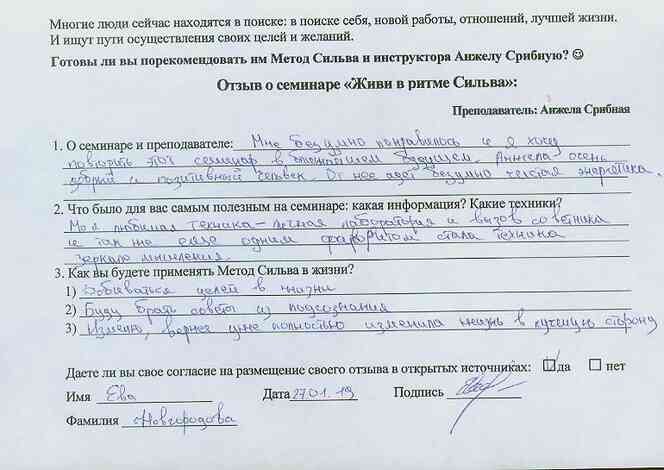 Многие люди сейчас находятся в поиске: в поиске себя, новой работы, отношений, лучшей жизни.
И ищут пути осуществления своих целей и желаний.
Готовы ли вы порекомендовать им Метод Сильва и инструктора Анжелу Срибную? ☺
Отзыв о семинаре «Живи в ритме Сильва»:
Преподаватель: Анжела Срибная
1. О семинаре и преподавателе: Мне безумно понравилось и я хочу
повторить этот семинар в ближайшем будущем. Анжела - очень
добрый и позитивный человек. От нее идет безумно чистая энергетика.
2. Что было для вас самым полезным на семинаре: какая информация? Какие техники?
Моя любимая техника - личная лаборатория и вызов советника
и так же еще одним фаворитом стала техника
зеркало мышления.
3. Как вы будете применять Метод Сильва в жизни?
1) Добиваться целей в жизни
2) Буду брать советы из подсознания
3) Изменю, вернее уже полностью изменила жизнь в лучшую сторону
Даете ли вы свое согласие на размещение своего отзыва в открытых источниках: ☑ да ☐ нет
Имя Ева Дата 27.01.19 Подпись
Фамилия Новгородова